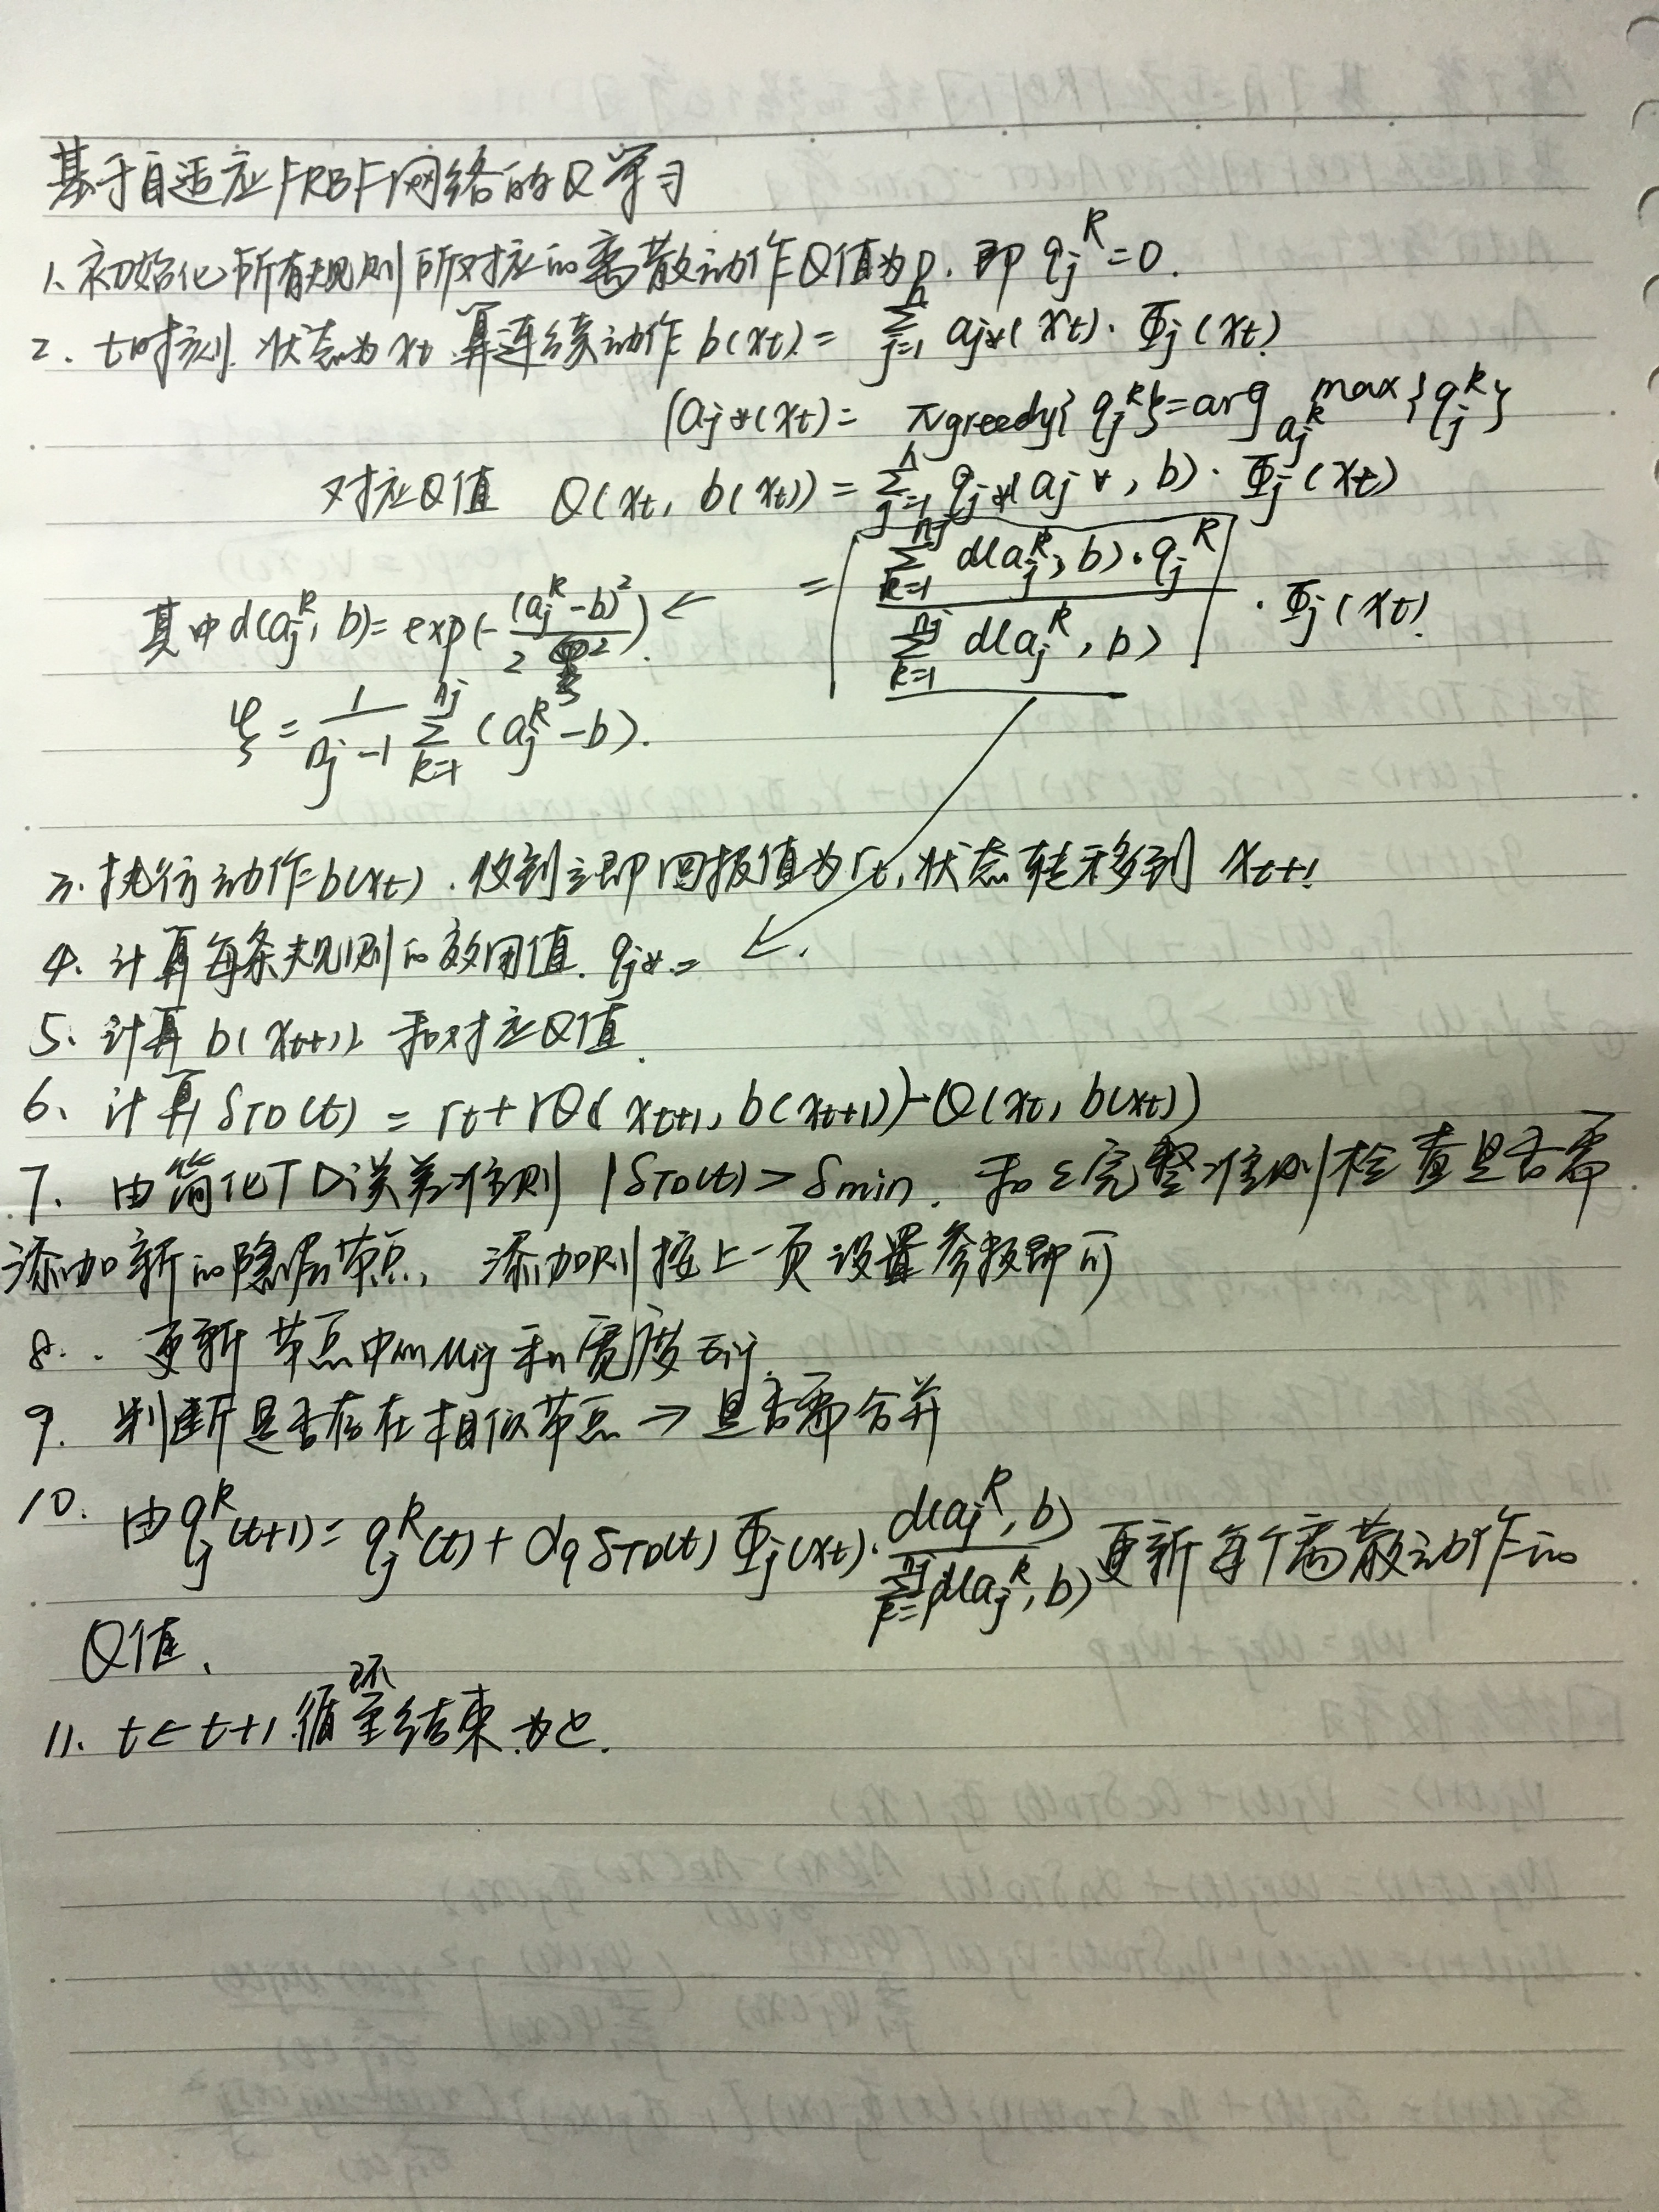 基于自适应FRBF网络的Q学习
1、初始化所有规则所对应的离散动作Q值为0. 即 q_j^k=0.
2. t时刻. 状态为x_t 算连续动作 b(x_t)= Σ_{j=1}^{h} a_{j*}(x_t)·Φ_j(x_t)
(a_{j*}(x_t)= πgreedy{q_j^k}=arg max_{a_j^k}{q_j^k}
对应Q值 Q(x_t, b(x_t))=Σ_{j=1}^{h} q_{j*}(a_{j*}, b)·Φ_j(x_t)
= [Σ_{k=1}^{n_j} d(a_j^k, b)·q_j^k / Σ_{k=1}^{n_j} d(a_j^k, b)]·Φ_j(x_t)
其中 d(a_j^k, b)= exp(-(a_j^k-b)^2 / 2 ξ^2).
ξ = 1/(n_j-1) Σ_{k=1}^{n_j} (a_j^k-b).
3. 执行动作b(x_t). 收到立即回报值为r_t, 状态转移到 x_{t+1}
4. 计算每条规则的效用值. q_{j*}= ↙.
5. 计算 b(x_{t+1}), 和对应Q值.
6、计算 δ_TD(t) = r_t+γQ(x_{t+1}, b(x_{t+1}))-Q(x_t, b(x_t))
7. 由简化TD误差准则 |δ_TD(t)>δmin. 和ε完整准则检查是否需
添加新的隐层节点, 添加则按上一页设置参数即可
8. . 更新 节点中心μ_ij和宽度σ_ij.
9. 判断是否存在相似节点 → 是否需合并
10. 由q_j^k(t+1)= q_j^k(t)+α_q δ_TD(t) Φ_j(x_t)· d(a_j^k, b) / Σ_{k=1}^{n_j} d(a_j^k, b) 更新每个离散动作的
Q值、
11. t←t+1 循环至结束为止.